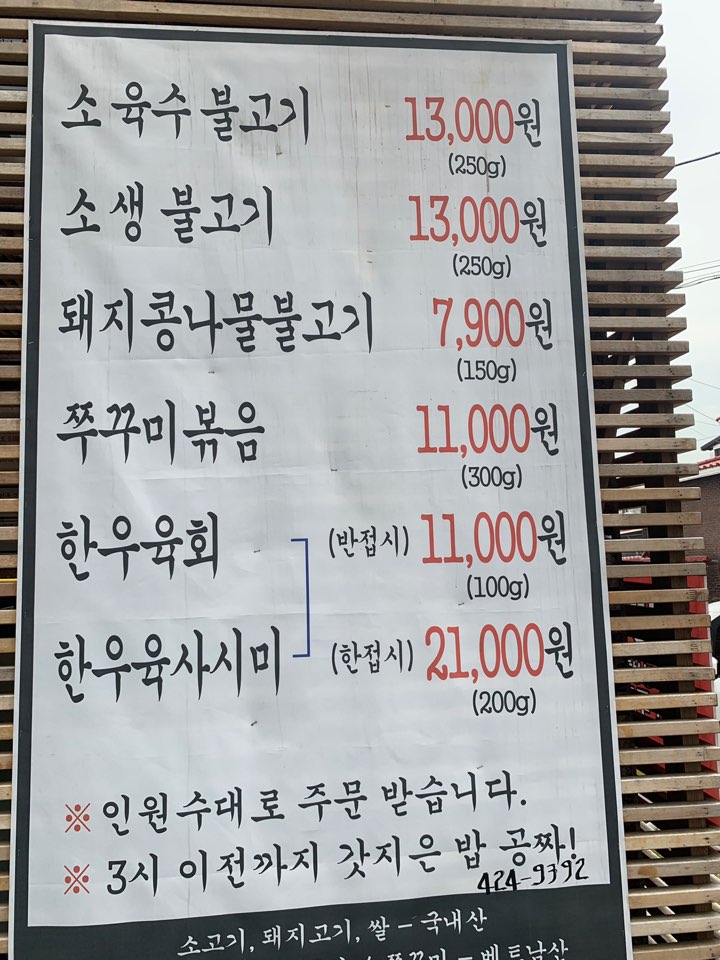 소 육수 불고기 13,000원
(250g)
소 생 불고기 13,000원
(250g)
돼지콩나물불고기 7,900원
(150g)
쭈꾸미볶음 11,000원
(300g)
한우육회 (반접시) 11,000원
(100g)
한우육사시미 (한접시) 21,000원
(200g)
※ 인원수대로 주문 받습니다.
※ 3시 이전까지 갓지은 밥 공짜!
424-9392
소고기, 돼지고기, 쌀 - 국내산
쭈꾸미 - 베트남산